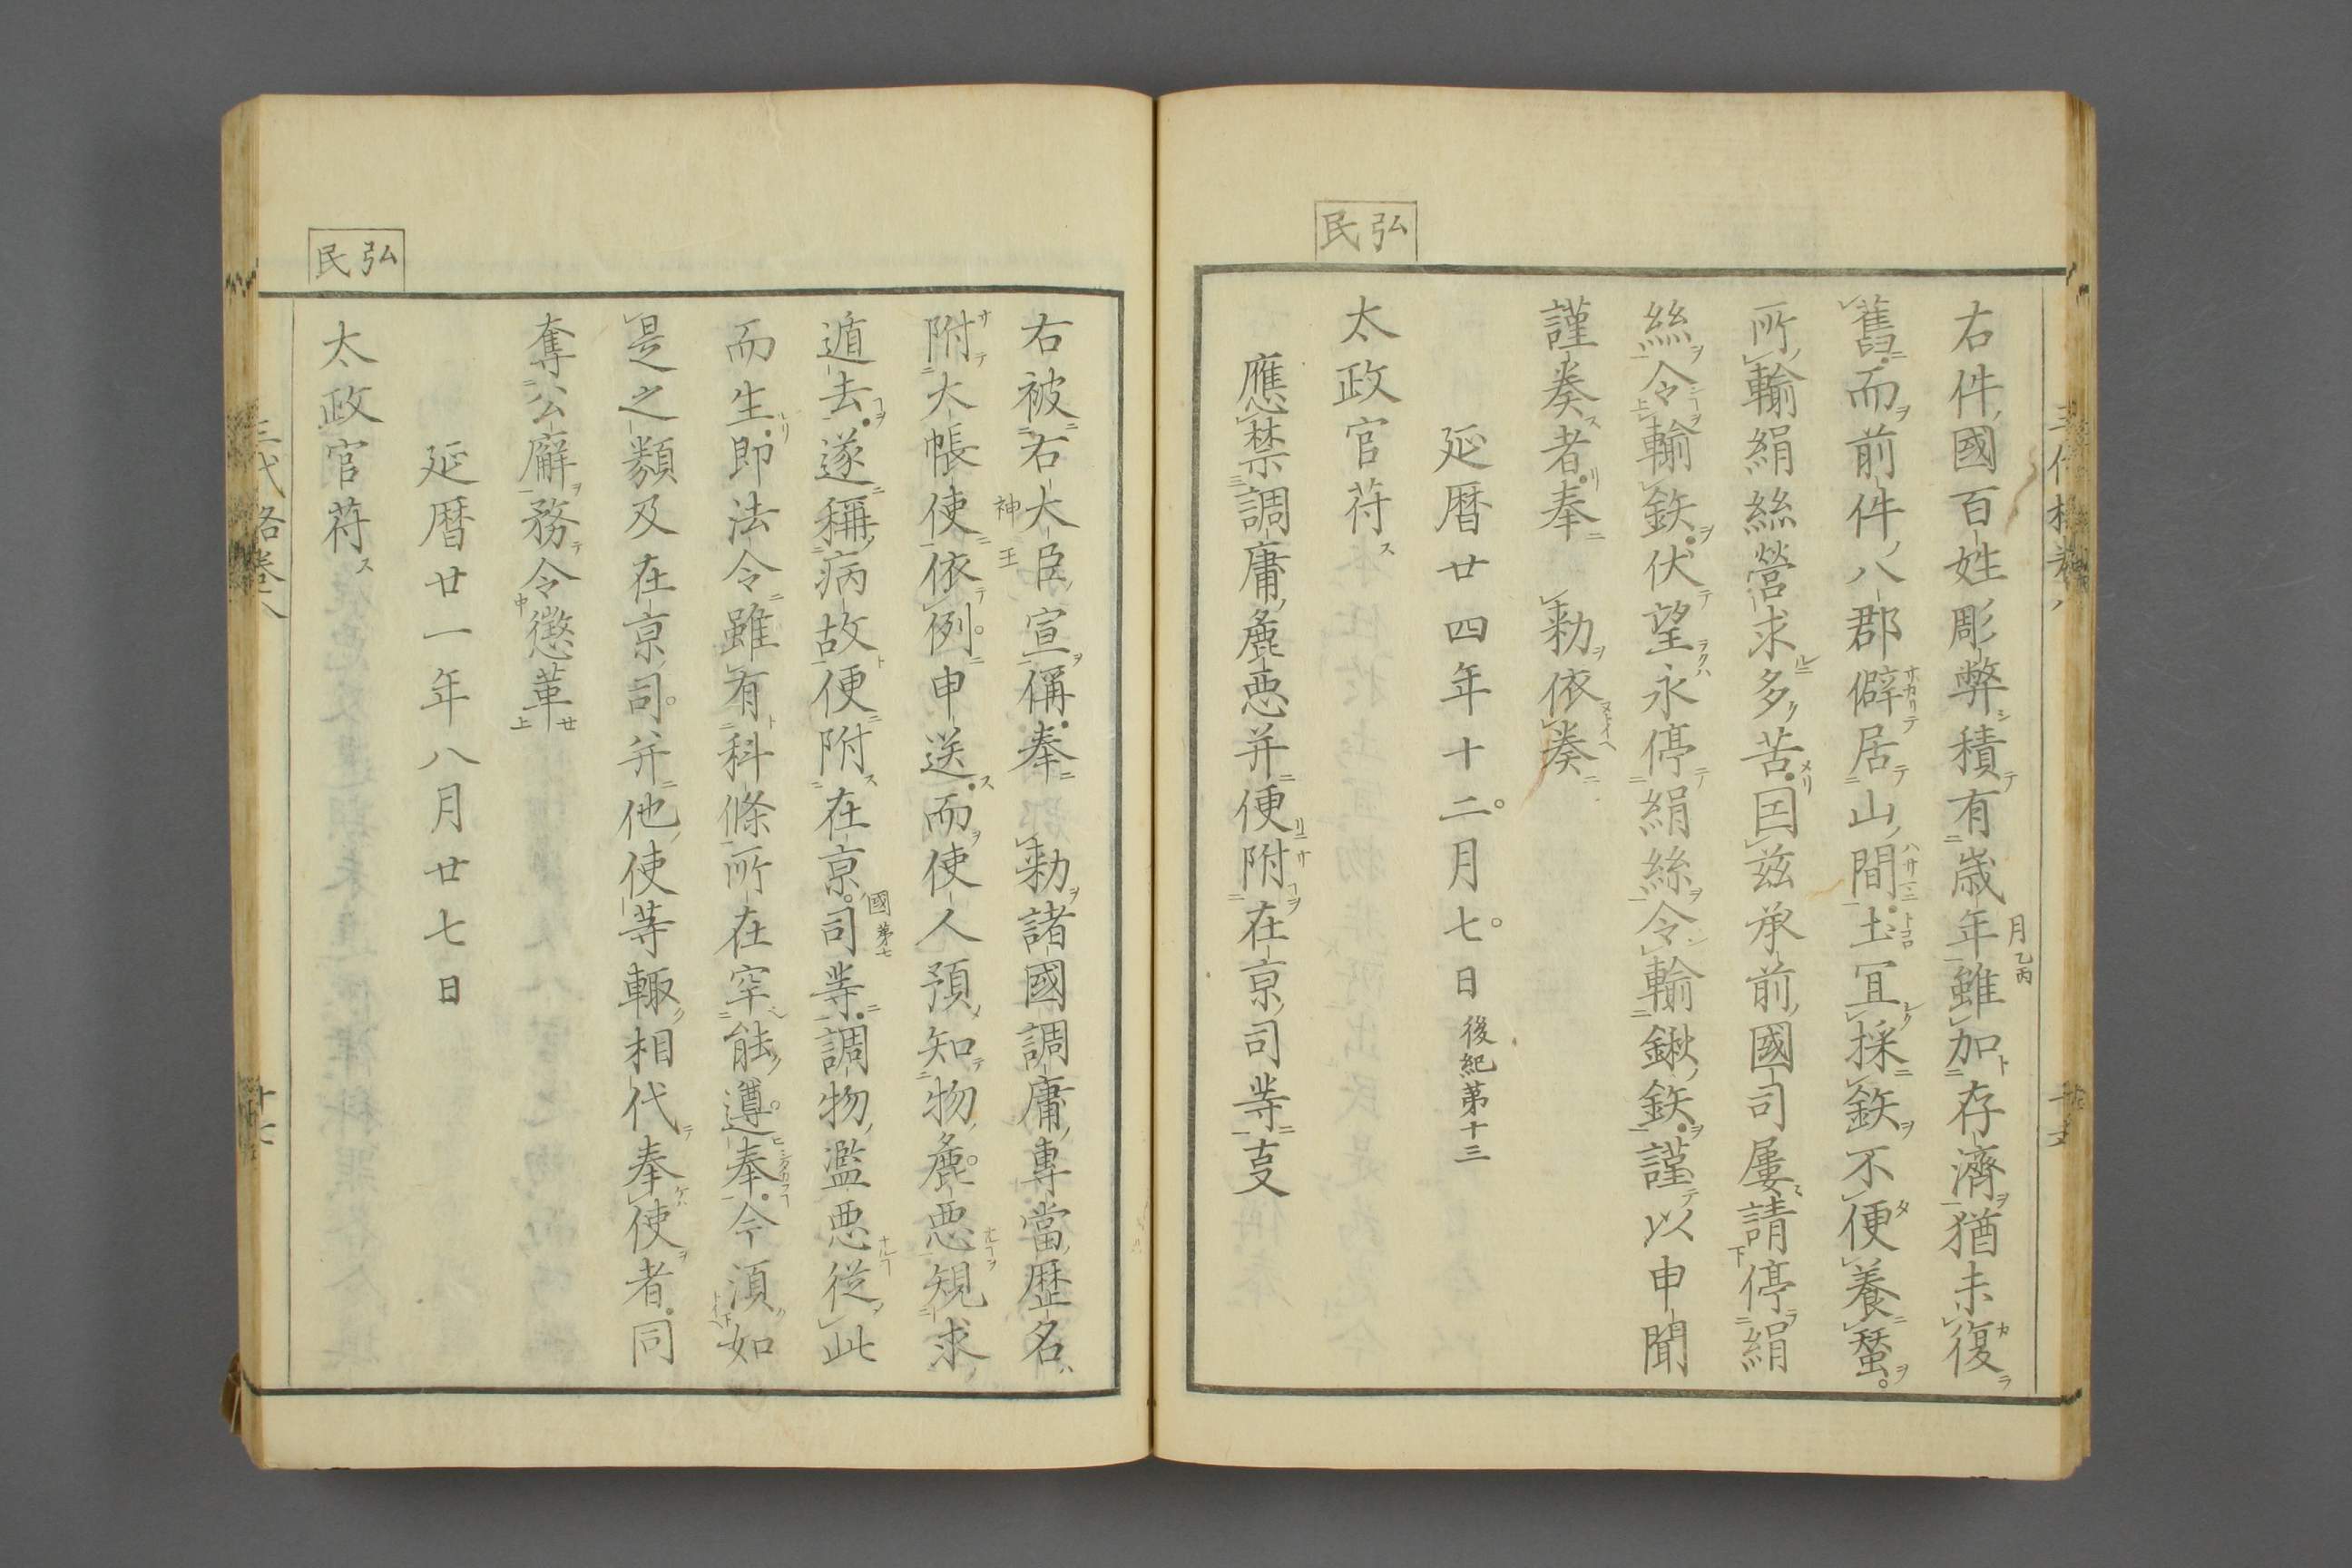 弘民
右件國百姓彫弊積有歳年雖加存濟猶未復
月乙丙
舊而前件八郡僻居山間土冝採鉄不便養蠶
所輸絹絲營求多苦因兹承前國司屢請停絹
絲令輸鉄伏望永停絹絲令輸鍬鉄謹以申聞
謹奏者奉勅依奏
延暦廿四年十二月七日後紀第十三
太政官苻
應禁調庸麁悪并便附在京司等事
右被右大臣宣偁奉勅諸國調庸專當歴名
神王
附大帳使依例申送而使人預知物麁悪規求
遁去遂稱病故便附在京司等調物濫悪從此
國第七
而生即法令雖有科條所在罕能遵奉今湏如
是之類及在京司并他使等輙相代奉使者同
奪公廨務令懲革
延暦廿一年八月廿七日
弘民
太政官苻
三代格卷八